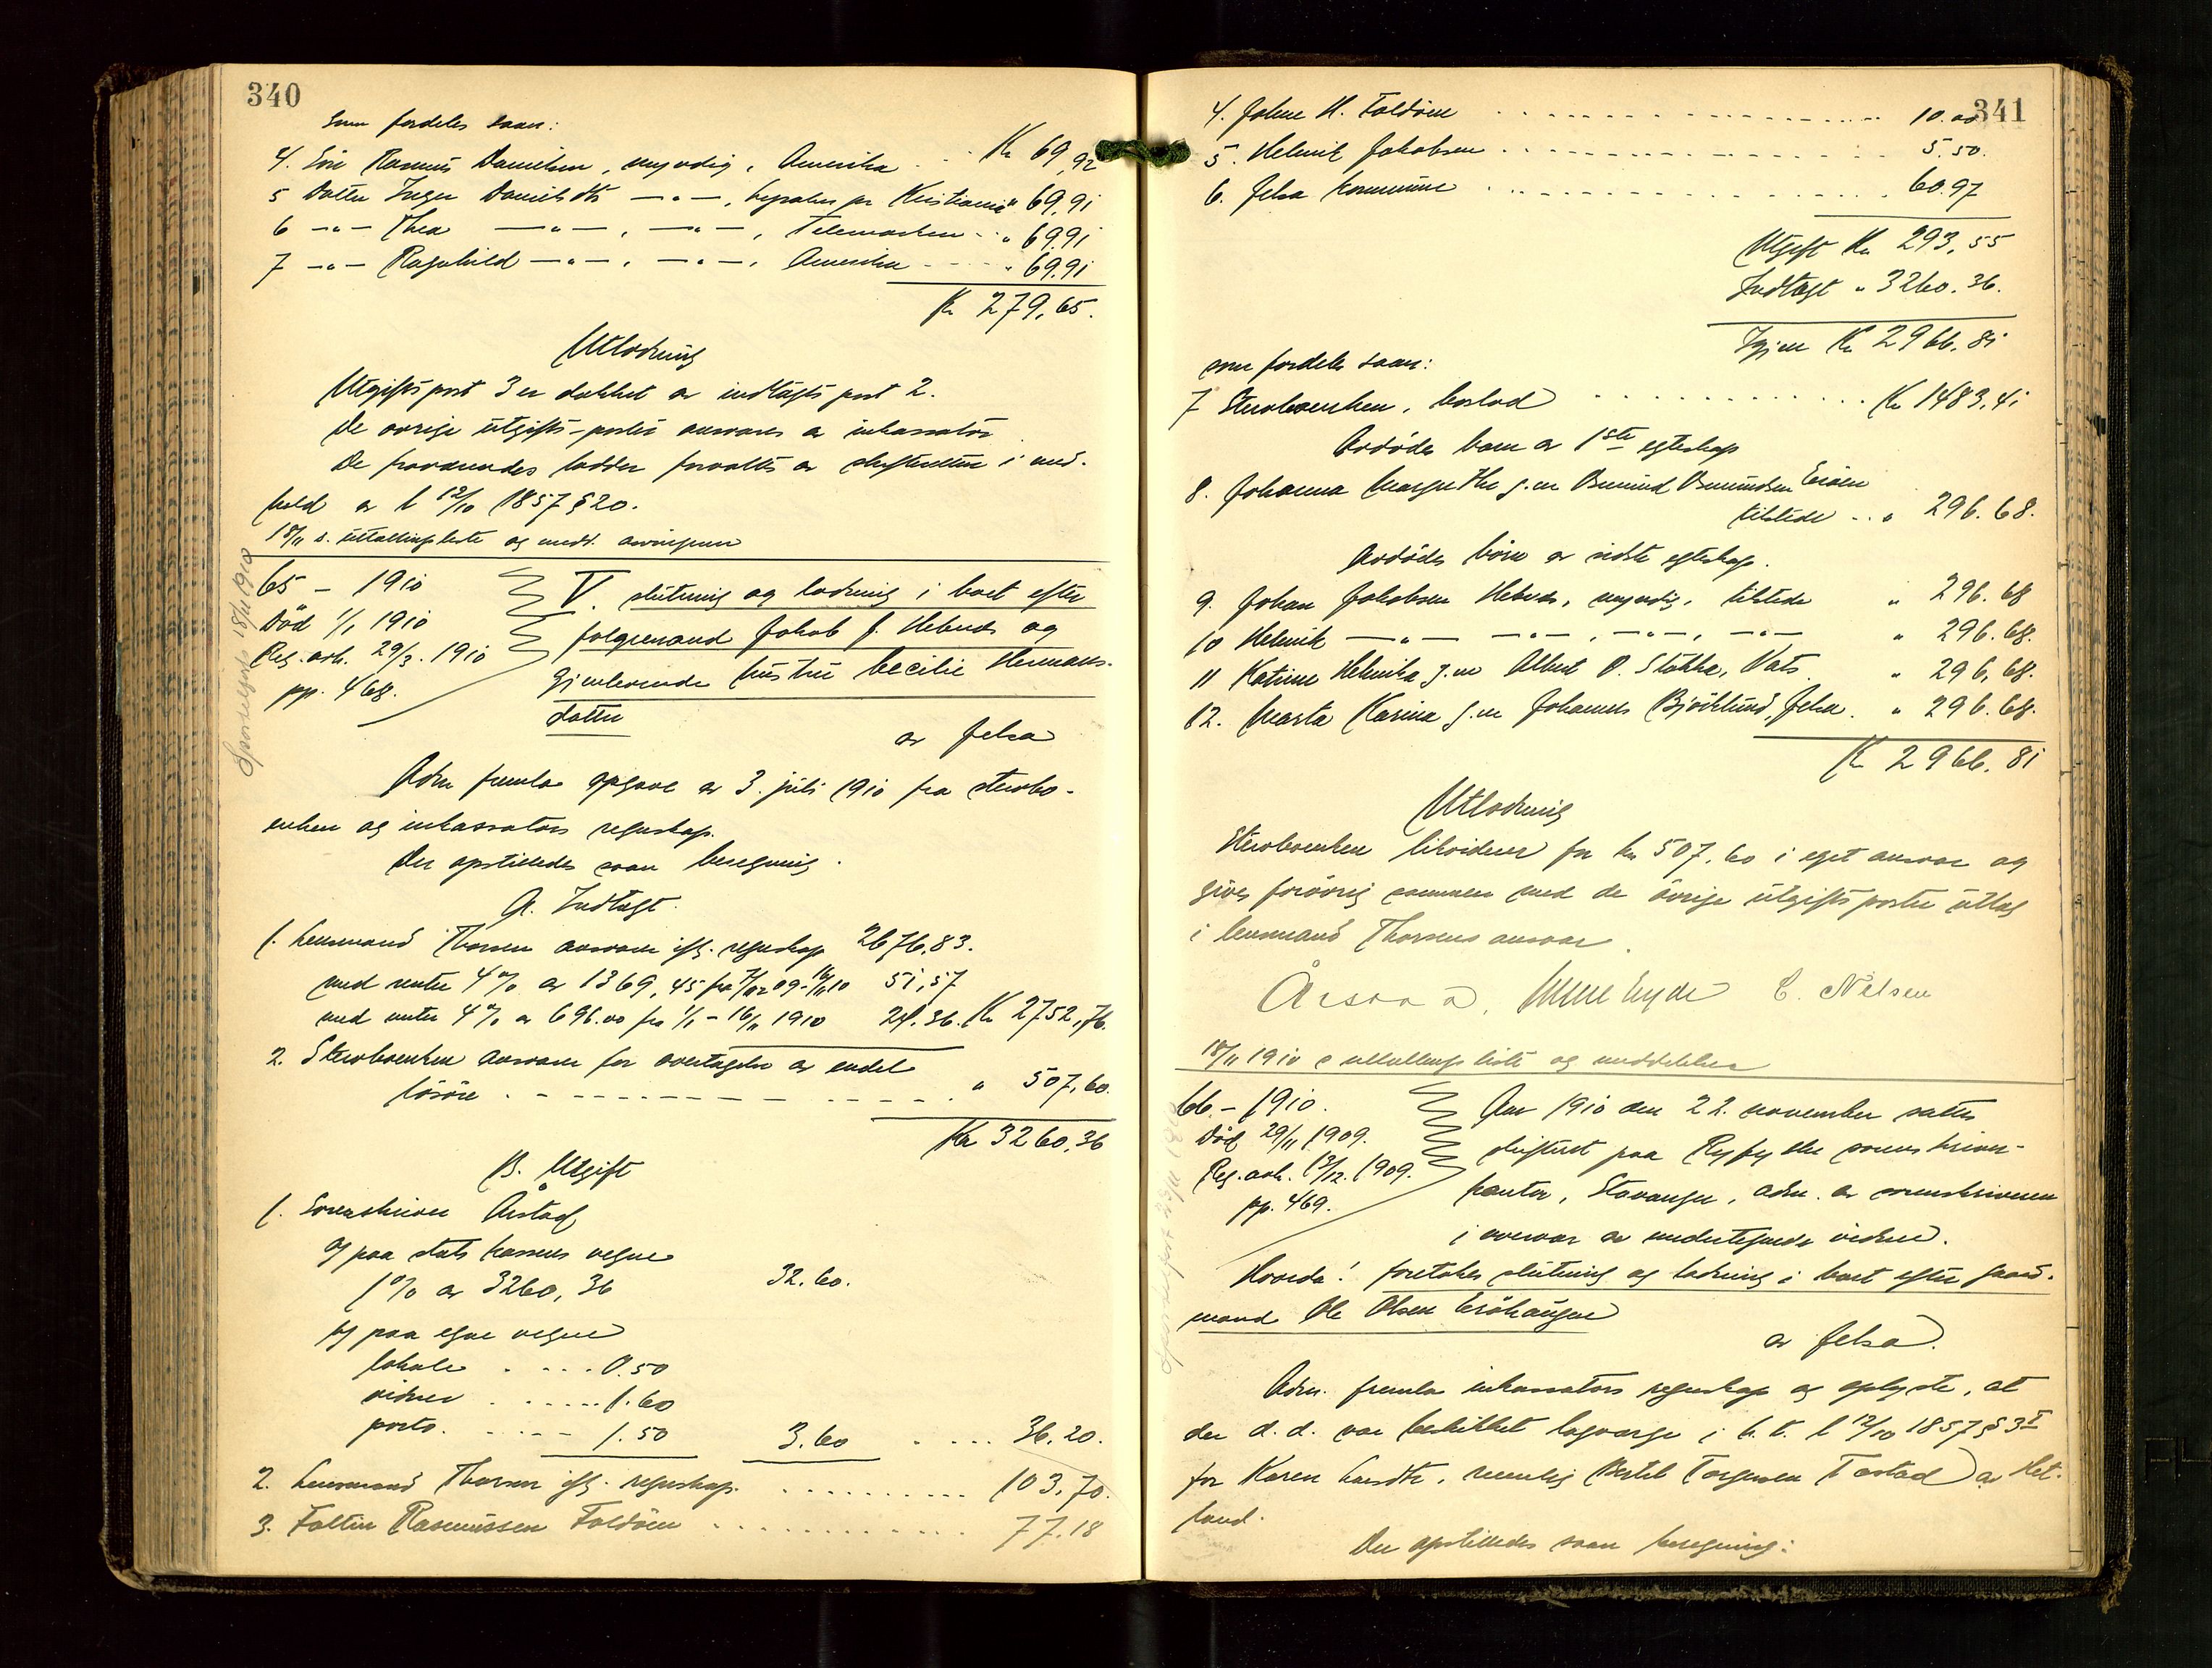 340
som fordeles saan:
4. Søn Rasmus Danielsen, umyndig, Amerika . . Kr 69,92
5 Datter Inger Danielsdtr —"—, Kristiania " 69,91
6 —"— Thea —"—, —"—, Telemarken . . " 69.91
7 —"— Ragnhild —"—, —"—, Amerika - - - " 69.91
Kr 279,65.
Utlodning
Utgiftspost 3 er dækket av indtægts post 2.
De øvrige utgifts-poster ansvares av inkassator
De fraværendes lodder forvaltes av skifteretten i med-
hold av l 12/10 1857 § 20.
18/11 s. utallingsliste og medd. arvingerne
Sportelfrds 18/11 1910
65 – 1910
Død 1/1 1910
Reg. avh. 29/3. 1910
pp. 468.
V. slutning og lodning i boet efter
følgemand Jakob J. Hebnes og
gjenlevende hustru Cecilie Hermans-
datter
av Jelsa
Adm fremla opgave av 3. juli 1910 fra sterbo-
enken og inkassators regnskap.
Der opstilledes saan beregning.
A. Indtægt.
1. Lensmand Thorsen ansvarer iflg. regnskap 2676,83.
med renter 4% av 1369,45 fra 7/12 09-16/11 10 51,57
med renter 4% av 696.00 fra 1/1 – 16/11 1910 24.36. Kr 2752,76.
2. Sterboenken ansvarer for overtagelse av endel
løsøre . - - - - - - " 507,60.
Kr 3260,36
B. Utgift
1. Sorenskriver Årstad
a) paa statskassens vegne
1% av 3260,36 32.60.
b) paa egne vegne
lokale . . . . 0.50
vidner . . . . . 1.60
porto. . . . . 1.50 3.60 . . . . 36.20.
2. Lensmand Thorsen iflg. regnskap. . . . . . . . . . 103,70.
3. Faltin Rasmussen Foldøen . . . . . . . . . . . 77.18
341
4. Johne H. Foldøen . . . . . . . . . 10.00
5. Helmik Jakobsen . . . . . . . . . 5.50.
6. Jelsa kommune . . . . . . . . . 60.97
Utgift Kr 293,55
Indtægt " 3260.36.
Igjen Kr 2966,81
som fordeles saan:
7 Sterboenken, boslod . . . . . . . . . . Kr 1483,41
Avdødes barn av 1ste egteskap
8. Johanna Margrethe g.m Osmund Osmundsen Eiøen
tilstede . . " 296.68.
Avdødes børn av sidste egteskap.
9. Johan Jakobsen Hebnes, myndig, tilstede " 296.68
10 Helmik —"— —"—, —"—, —"— " 296.68.
11 Katrine Helmika g.m Albert O. Stokka, Vats. " 296,68.
12. Marta Karina g.m Johannes Bjørklund, Jelsa. " 296.68.
Kr 2966.81
Utlodning
Sterboenken likviderer for kr 507,60 i eget ansvar og
gives forøvrig sammen med de øvrige utgifts poster utlæg
i lensmand Thorsens ansvar.
Årstad, C. Nilsen
18/11 1910 s utallings liste og meddelelser
66 – 1910.
Død 29/11 1909.
Reg. avh. 13/12. 1909.
pp. 469.
Aar 1910 den 22. november sattes
skifteret paa Ryfylke sorenskriver-
kontor, Stavanger, adm. av sorenskriveren
i overvær av undertegnede vidner.
Hvorda! foretokes slutning og lodning i boet efter gaard-
mand Ole Olsen Erøhaugen
av Jelsa.
Adm. fremla inkassators regnskap og oplyste, at
der d. d. var beskikket lagværge i h. t. l 12/10 1857 § 3 I
for Karen Larsdtr, nemlig Bertel Torgersen Tastad av Het-
land.
Der opstilledes saan beregning: